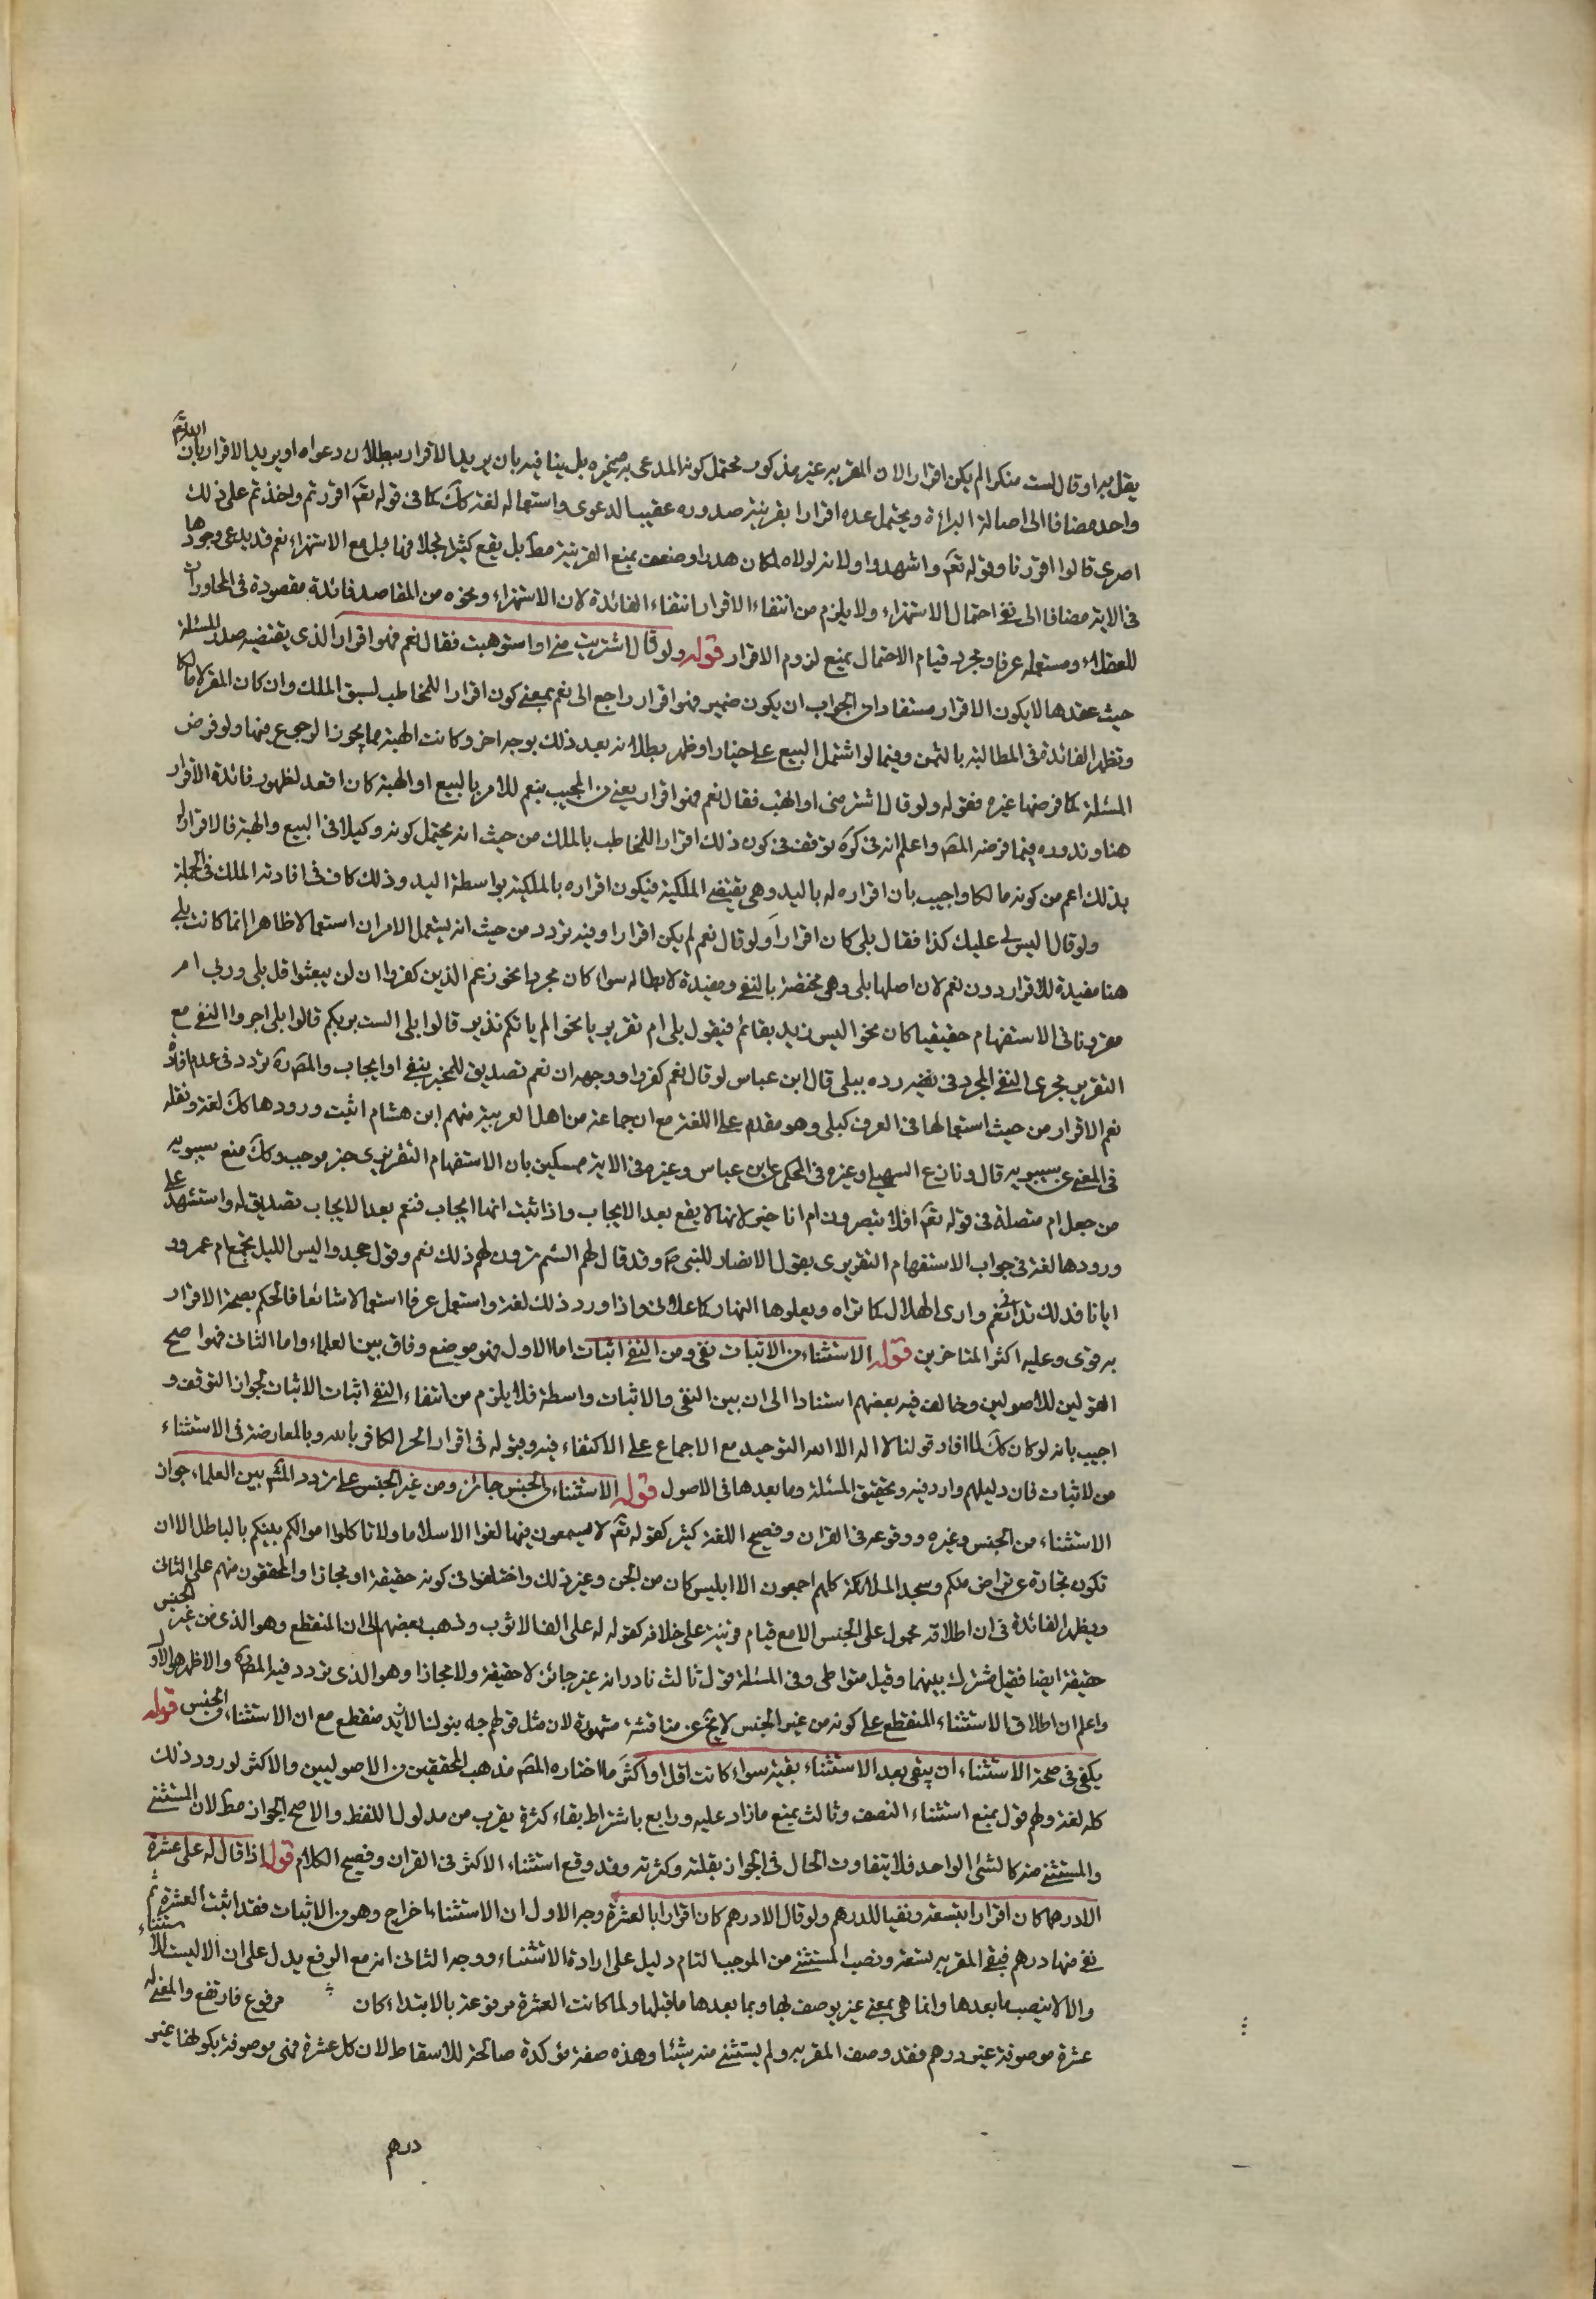 يقل به او قال لست منكرا لم يكن اقرارا لان المقر به غير مذكور محتمل كونه المدعى به وغيره بل ينافيه بان يريد الاقرار ببطلان دعواه او يريد الاقرار بان الله تم
واحد مضافا الى اصالة البراءة ويحتمل عده اقرارا بقرينة صدوره عقيب الدعوى واستعماله لغة كك كما فى قوله تعم اقررتم واخذتم على ذلك
اصرى قالوا اقررنا وقوله تعم واشهدوا ولانه لولاه لكان هدرا وضعف بمنع القرينة مط بل يقع كثيرا بخلافها بل مع الاستهزاء نعم قد يدعى وجودها
فى الاية مضافا الى نفى احتمال الاستهزاء ولا يلزم من انتفاء الاقرار انتفاء الفائدة لان الاستهزاء ونحوه من المقاصد فائدة مقصودة فى المحاورات
للعقلاء ومستعمله عرفا ومجرد قيام الاحتمال يمنع لزوم الاقرار قوله ولو قال اشتريت منى او استوهبت فقال نعم فهو اقرار الذى يقتضيه صدر المسئلة
حيث عقدها لا يكون الاقرار مستفادا من الجواب ان يكون ضمير فهو اقرار راجع الى نعم بمعنى كون اقرارا للمخاطب لسبق الملك وان كان المقر له مالكا
وتظهر الفائدة فى المطالبة بالثمن وفيما لو اشتمل البيع على خيار او ظهر بطلانه بعد ذلك بوجه اخر وكانت الهبة مما يجوز الرجوع فيها ولو فرض
المسئلة كما فرضها غيره فقوله ولو قال اشتر منى او اتهب فقال نعم فهو اقرار يعنى من المجيب بنعم للامر بالبيع او الهبة كان اقعد لظهور فائدة الاقرار
هنا وندوده فيما فرضه المصم واعلم انه فى كره توقف فى كون ذلك اقرارا للمخاطب بالملك من حيث انه يحتمل كونه وكيلا فى البيع والهبة فالاقرار له
بذلك اعم من كونه مالكا واجيب بان اقراره له باليد وهى يقتضى الملكية فيكون اقراره بالملكية بواسطة اليد وذلك كاف فى افادته الملك فى الجملة
ولو قال اليس لى عليك كذا فقال بلى كان اقرارا ولو قال نعم لم يكن اقرارا وفيه تردد من حيث انه يستعمل الامران استعمالا ظاهرا انما كانت بلى
هنا مفيدة للاقرار دون نعم لان اصلها بلى وهى مختصة بالنفى ومفيدة لابطاله سواء كان مجردا نحو زعم الذين كفروا ان لن يبعثوا قل بلى وربى ام
مقرونا فى الاستفهام حقيقيا كان نحو اليس زيد بقائم فيقول بلى ام تقريريا نحو الم ياتكم نذير قالوا بلى الست بربكم قالوا بلى اجروا النفى مع
التقرير مجرى النفى المجرد فى نفيه رده ببلى قال ابن عباس لو قال نعم كفروا ووجهه ان نعم تصديق للمخبر بنفى او ايجاب والمصم ره تردد فى عدم افادة
نعم الاقرار من حيث استعمالها فى العرف كبلى وهو مقدم على اللغة مع ان جماعة من اهل العربية منهم ابن هشام اثبت ورودها كك لغة ونقله
فى المغنى عن سيبويه قال ونازع السهيلى وغيره فى المحكى عن ابن عباس وغيره فى الاية متمسكين بان الاستفهام التقريرى خبر موجب وكك منع سيبويه
من جعل ام متصلة فى قوله تعم افلا تبصرون ام انا خير لانها لا يقع بعد الايجاب واذا ثبت انها ايجاب فنعم بعد الايجاب تصديق له واستشهد على
ورودها لغة فى جواب الاستفهام التقريرى بقول الانصار للنبى ص وقد قال لهم الستم ترون لهم ذلك نعم وقول جحد واليس الليل يجمع ام عمرو
ايانا فذلك تدانى نعم وارى الهلال كما تراه ويعلوها النهار كما علانى واذا ورد ذلك لغة واستعمل عرفا استعمالا شائعا فالحكم بصحة الاقرار
به قوى وعليه اكثر المتاخرين قوله الاستثناء من الاثبات نفى ومن النفى اثبات اما الاول فهو موضع وفاق بين العلماء واما الثانى فهو اصح
القولين للاصوليين وخالف فيه بعضهم استنادا الى ان بين النفى والاثبات واسطة فلا يلزم من انتفاء النفى اثبات الاثبات لجواز التوقف و
اجيب بانه لو كان كك لما افاد قولنا لا اله الا الله التوحيد مع الاجماع على الاكتفاء فيه وبقوله فى اقرار الكافر بالله وبالمعارضة فى الاستثناء
من لاثبات فان دليلهم وارد فيه وتحقيق المسئلة وما بعدها فى الاصول قوله الاستثناء من الجنس جائز ومن غير الجنس على تردد المشم بين العلماء جواز
الاستثناء من الجنس وغيره ووقوعه فى القران وفصيح اللغة كثير كقوله تعم لا يسمعون فيها لغوا الا سلاما ولا تاكلوا اموالكم بينكم بالباطل الا ان
تكون تجارة عن تراض منكم وسجد الملائكة كلهم اجمعون الا ابليس كان من الجن وغير ذلك واختلفوا فى كونه حقيقة او مجازا والمحققون منهم على الثانى
ويظهر الفائدة فى ان اطلاقه محمول على الجنس الا مع قيام قرينة على خلافه كقوله له على الف الا ثوب وذهب بعضهم الى ان المنقطع وهو الذى من غير الجنس
حقيقة ايضا فقيل مشترك بينهما وقيل متواطى وفى المسئلة قول ثالث نادر انه غير جائز لا حقيقة ولا مجازا وهو الذى تردد فيه المصم ره والاظهر هو الاول
واعلم ان اطلاق الاستثناء المنقطع على كونه من غير الجنس لا يخ عن مناقشة مشهورة لان مثل قولهم جاء بنو لنا الا زيد منقطع مع ان الاستثناء من الجنس قوله
يكفى فى صحة الاستثناء ان يبقى بعد الاستثناء بقية سواء كانت اقل او اكثر ما اختاره المصم مذهب المحققين من الاصوليين والاكثر لورود ذلك
كله لغة ولهم قول بمنع استثناء النصف وثالث بمنع ما زاد عليه ورابع باشتراط بقاء كثرة يقرب من مدلول اللفظ والاصح الجواز مط لان المستثنى
والمستثنى منه كالشئ الواحد فلا يتفاوت الحال فى الجواز بقلته وكثرته وقد وقع استثناء الاكثر فى القران وفصيح الكلام قوله اذا قال له على عشرة
الا درهما كان اقرارا بتسعة ونفيا للدرهم ولو قال الا درهم كان اقرارا بالعشرة وجه الاول ان الاستثناء اخراج وهو من الاثبات فقد اثبت العشرة ثم
نفى منها درهم فبقى المقر به تسعة ونصب المستثنى من الموجب التام دليل على ارادة الاستثناء ووجه الثانى انه مع الرفع يدل على ان الا ليست للاستثناء
والا لانتصب ما بعدها وانما هى بمعنى غير يوصف بها وبما بعدها ما قبلها ولما كانت العشرة مرفوعة بالابتداء كان مرفوع فارتفع والمعنى له
عشرة موصوفة غير درهم فقد وصف المقر به ولم يستثنى منه شيئا وهذه صفة مؤكدة صالحة للاسقاط لان كل عشرة فهى موصوفة بكونها غير
درهم